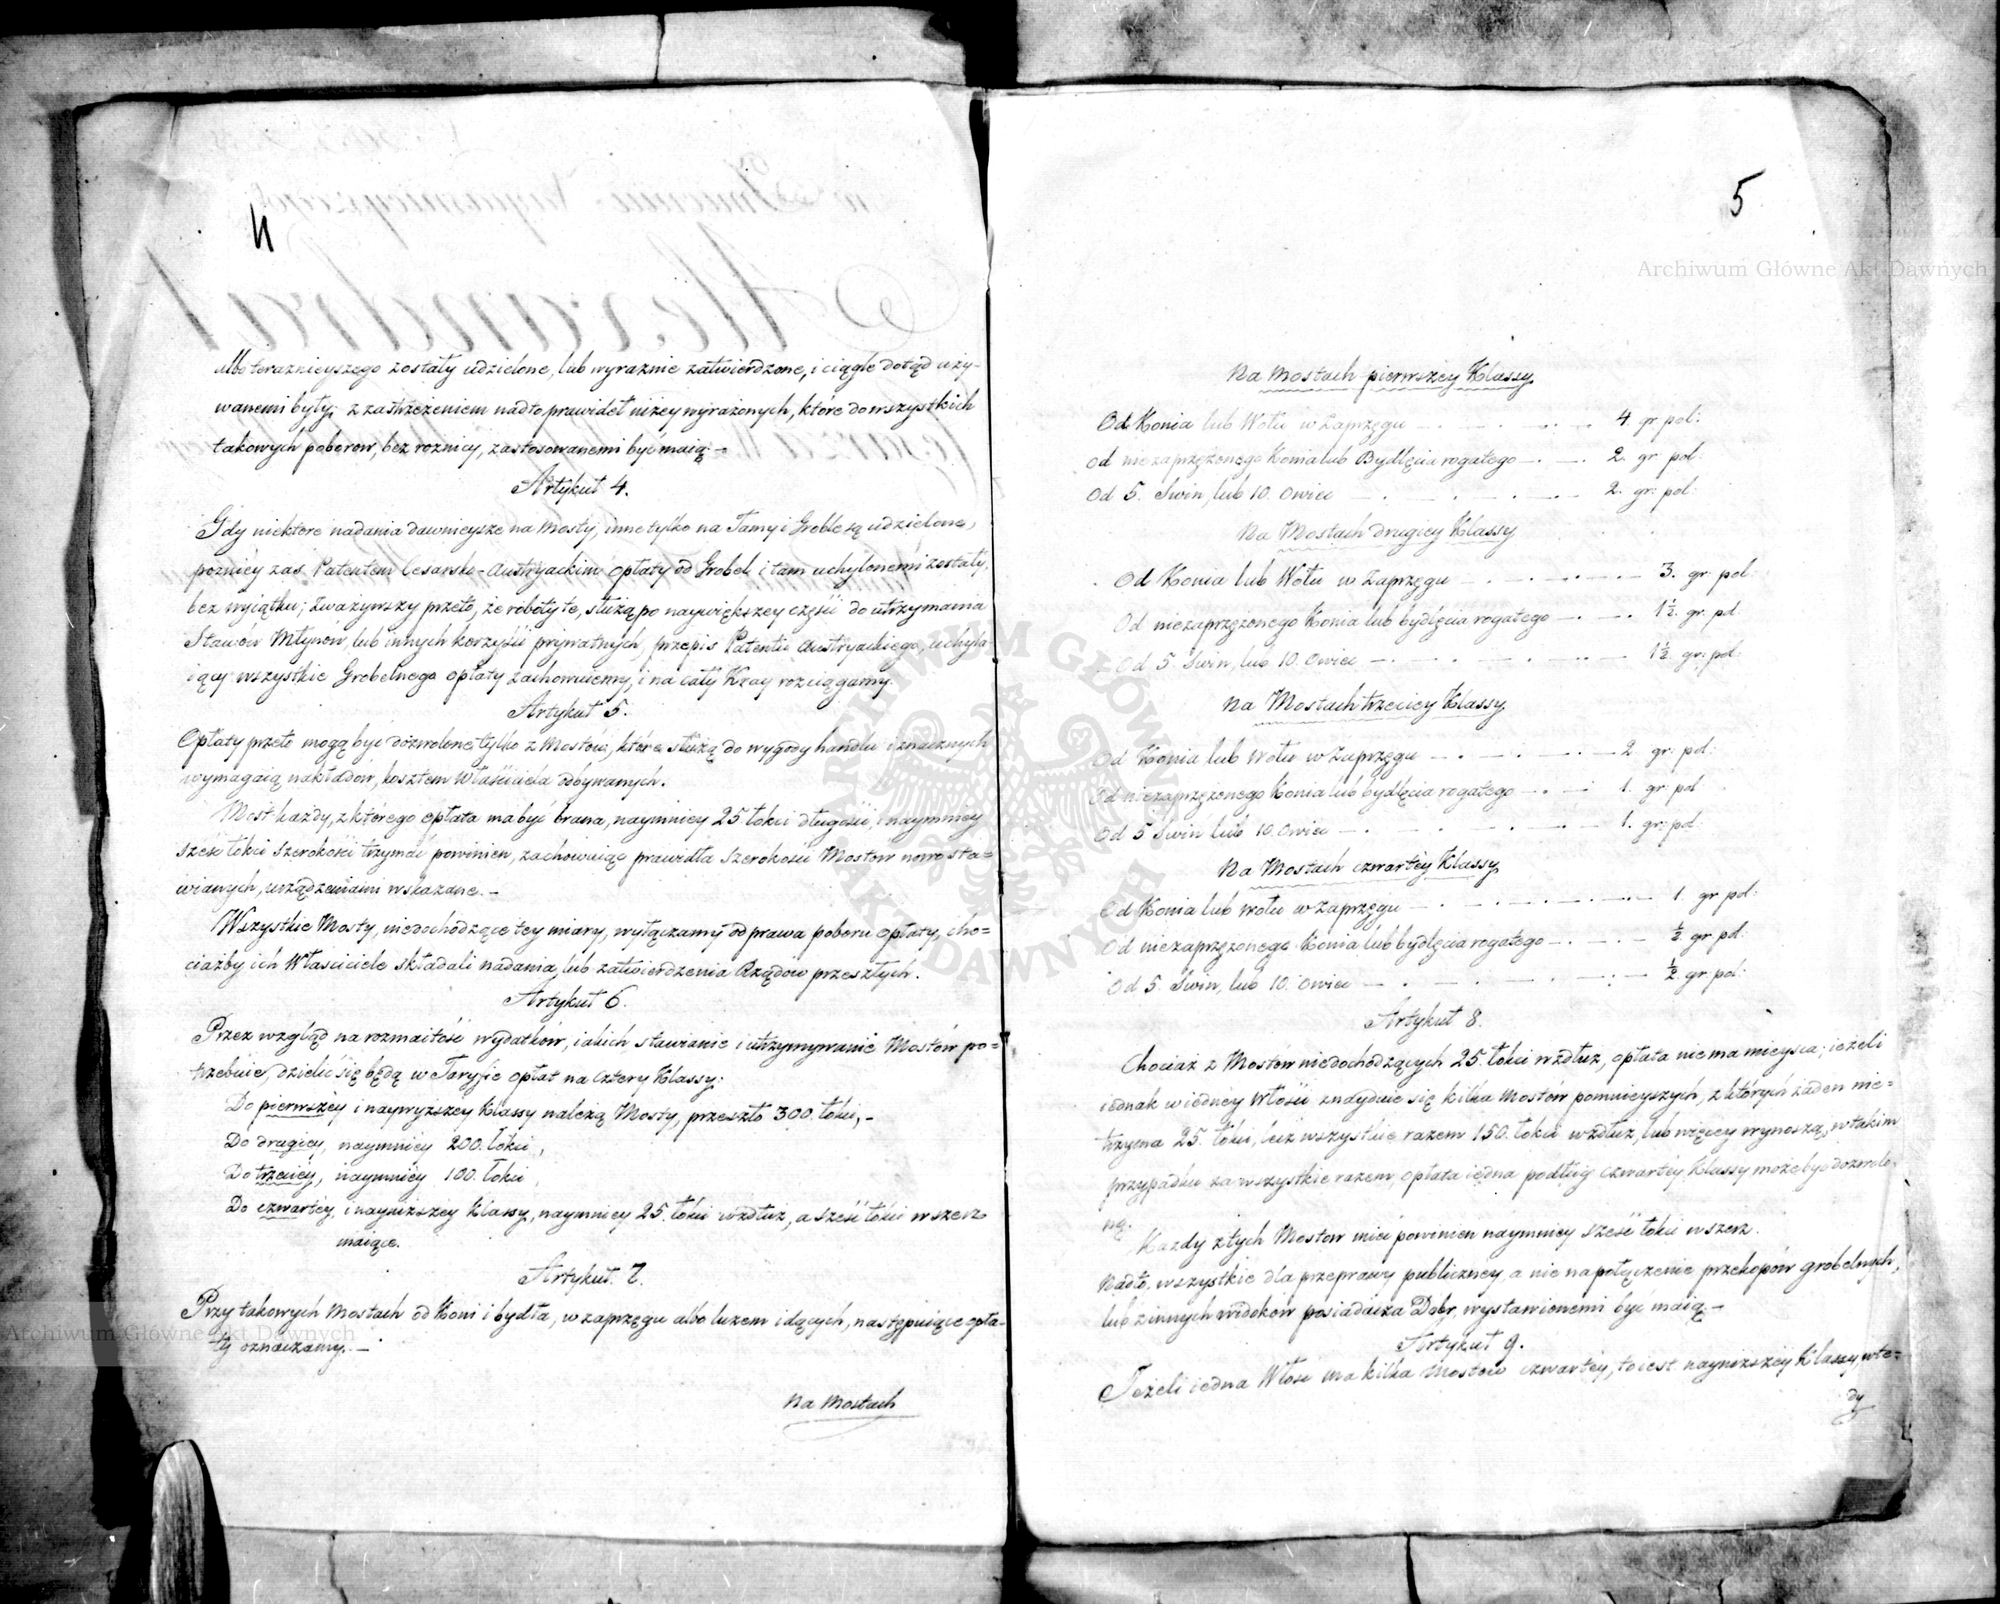 4
albo teraznieyszego zostały udzielone, lub wyraznie zatwierdzone, i ciągle dotąd uży-
wanemi były; z zastrzeżeniem nadto prawideł niżey wyrażonych, które do wszystkich
takowych poborow, bez roznicy, zastosowanemi być maią. —
Artykuł 4.
Gdy niektore nadania dawnieysze na Mosty, inne tylko na Tamy i Groble są udzielone,
pozniéy zas Patentem Cesarsko-Austryackim opłaty od Grobel i tam uchylonemi zostały,
bez wyiątku; zważywszy przeto, że roboty te, służą po naywiększey części do utrzymania
Stawow Młynow, lub innych korzyści prywatnych, przepis Patentu Austryackiego, uchyla-
iący wszystkie Grobelnego opłaty zachowuiemy, i na cały Kray rozciągamy.
Artykuł 5.
Opłaty przeto mogą być dozwolone tylko z Mostów, które służą do wygody handlu i znacznych
wymagaią nakładów, kosztem Właściciela odbywanych.
Most każdy, z którego opłata ma być brana, naymniey 25 łokci długości, i naymniey
sześć łokci szerokości trzymać powinien, zachowuiąc prawidła szerokości Mostow nowo sta=
wianych, urządzeniami wskazane. —
Wszystkie Mosty, niedochodzące tey miary, wyłączamy od prawa poboru opłaty, cho=
ciażby ich Właściciele składali nadania, lub zatwierdzenia Rządów przeszłych.
Artykuł 6.
Przez wzgląd na rozmaitość wydatków, iakich stawianie i utrzymywanie Mostów po=
trzebuie, dzielić się będą w Taryfie opłat na cztery Klassy:
Do pierwszéy i naywyższey Klassy należą Mosty, przeszło 300. łokci, —
Do drugiey, naymniéy 200. łokci,
Do trzeciéy, naymniéy 100. łokci,
Do czwartéy, i nayniższéy Klassy, naymniey 25. łokci wzdłuż, a sześć łokci wszerz
maiące.
Artykuł 7.
Przy takowych Mostach od Koni i bydła, w zaprzęgu albo luzem idących, następuiące opła-
ty oznaczamy. —
Na Mostach
5
Na Mostach pierwszéy Klassy
Od Konia lub Wołu w Zaprzęgu — 4. gr: pol:
Od niezaprzężonego Konia lub Bydlęcia rogatego — 2. gr: pol:
Od 5. Swin, lub 10. Owiec — 2. gr: pol:
Na Mostach drugiey Klassy
Od Konia lub Wołu w Zaprzęgu — 3. gr: pol:
Od niezaprzężonego Konia lub bydlęcia rogatego — 1½. gr: pol:
Od 5 Swin, lub 10. Owiec — 1½ gr: pol:
Na Mostach trzeciey Klassy
Od Konia lub Wołu w Zaprzęgu — 2. gr: pol:
Od niezaprzężonego Konia lub bydlęcia rogatego — 1. gr: pol
Od 5 Swin lub 10. Owiec — 1. gr: pol:
Na Mostach czwartéy Klassy
Od Konia lub wołu w zaprzęgu — 1. gr pol:
Od niezaprzężonego Konia lub bydlęcia rogatego — ½ gr pol:
Od 5. Swin, lub 10. Owiec — ½ gr pol:
Artykuł 8.
Chociaż z Mostów niedochodzących 25. łokci wzdłuż, opłata nie ma mieysca; ieżeli
iednak w iedney Włości znayduie się kilka Mostów pomnieyszych, z których żaden nie=
trzyma 25. łokci, lecz wszystkie razem 150. łokci wzdłuż, lub więcey wynoszą, w takim
przypadku za wszystkie razem, opłata iedna podług czwartéy Klassy może być dozwolo-
ną.
Każdy z tych Mostow mieć powinien naymniey sześć łokci wszerz.
Nadto, wszystkie dla przeprawy publiczney, a nie na połączenie przekopów grobelnych,
lub z innych widoków posiadacza Dobr, wystawionemi być maią. —
Artykuł 9.
Jeżeli iedna Włość ma kilka Mostow czwartéy, to iest nayniższéy Klassy, wte=
dy
Archiwum Główne Akt Dawnych
Archiwum Główne Akt Dawnych
ARCHIWUM GŁÓWNE AKT DAWNYCH